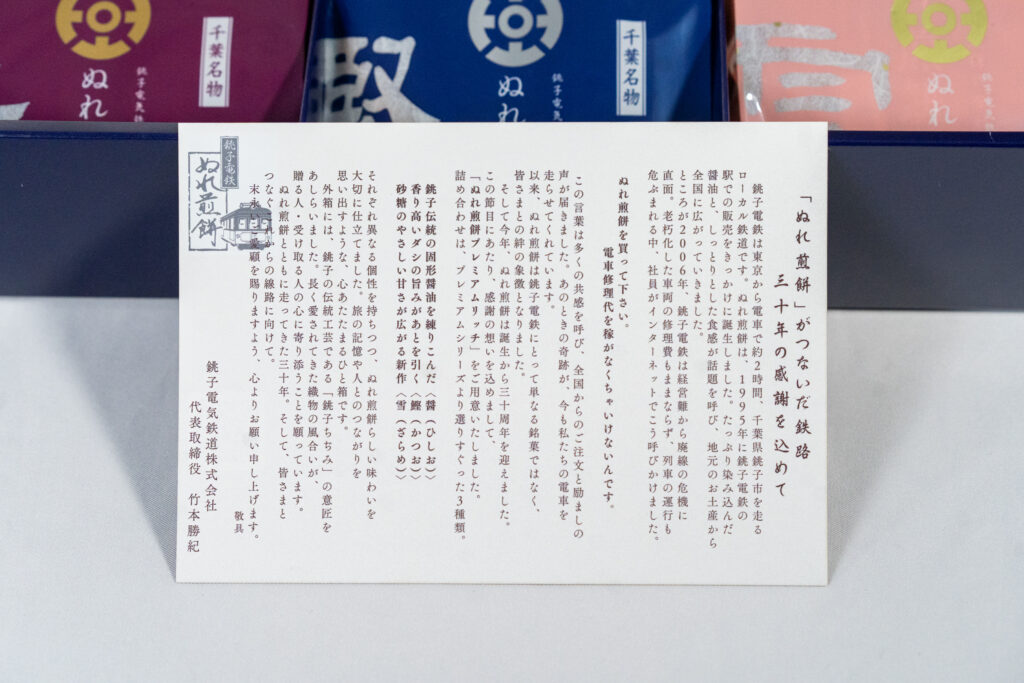 千葉名物
ぬれ
千葉名物
銚子電気鉄
ぬれ
銚子電気鉄
ぬれ
「ぬれ煎餅」がつないだ鉄路
三十年の感謝を込めて
銚子電鉄は東京から電車で約2時間、千葉県銚子市を走る
ローカル鉄道です。ぬれ煎餅は、1995年に銚子電鉄の
駅での販売をきっかけに誕生しました。たっぷり染み込んだ
醤油と、しっとりとした食感が話題を呼び、地元のお土産から
全国に広がっていきました。
ところが2006年、銚子電鉄は経営難から廃線の危機に
直面。老朽化した車両の修理費もままならず、列車の運行も
危ぶまれる中、社員がインターネットでこう呼びかけました。
ぬれ煎餅を買って下さい。
電車修理代を稼がなくちゃいけないんです。
この言葉は多くの共感を呼び、全国からのご注文と励ましの
声が届きました。あのときの奇跡が、今も私たちの電車を
走らせてくれています。
以来、ぬれ煎餅は銚子電鉄にとって単なる銘菓ではなく、
皆さまとの絆の象徴となりました。
そして今年、ぬれ煎餅は誕生から三十周年を迎えました。
この節目にあたり、感謝の想いを込めまして、
「ぬれ煎餅プレミアムリッチ」をご用意いたしました。
詰め合わせは、プレミアムシリーズより選りすぐった3種類。
銚子伝統の固形醤油を練りこんだ〈醤（ひしお）〉
香り高いダシの旨みがあとを引く〈鰹（かつお）〉
砂糖のやさしい甘さが広がる新作〈雪（ざらめ）〉
それぞれ異なる個性を持ちつつ、ぬれ煎餅らしい味わいを
大切に仕立てました。旅の記憶や人とのつながりを
思い出すような、心あたたまるひと箱です。
外箱には、銚子の伝統工芸である「銚子ちぢみ」の意匠を
あしらいました。長く愛されてきた織物の風合いが、
贈る人・受け取る人の心に寄り添うことを願っています。
ぬれ煎餅とともに走ってきた三十年。そして、皆さまと
つなぐこれからの線路に向けて。
末永いご愛顧を賜りますよう、心よりお願い申し上げます。
敬具
銚子電気鉄道株式会社
代表取締役 竹本勝紀
銚子電鉄
ぬれ煎餅